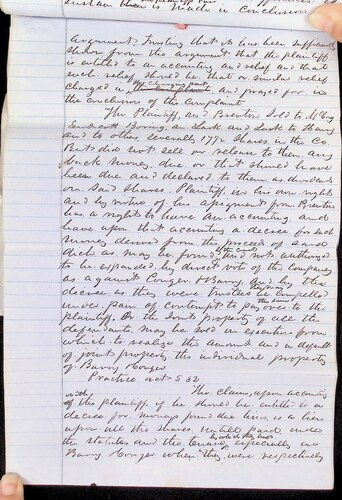 sustain them is made in conclusion
argument. Trusting that it has been sufficiently
shown from the argument that the plaintiff
is entitled to an accounting and relief and that
such relief should be that or similar relief
charged in and prayed for in
the conclusion of the Complaint
The Plaintiff, and Brereton sold to
and to others severally shares in the Co.
But did not sell or release to them any
back money due or that should have
been due and declared to them as dividend
on said shares. Plaintiff in his own rights
and by virtue of his assignment from Brereton
has a right to have an accounting and
have upon that accounting a decree for such
money derived from the proceeds of said
ditch as may be found and not authorized
to be expended by direct vote of the company
as against Conger & Barry. And by the
decree as they were trustees be compelled
under pain of contempt to pay over to the
plaintiff. Or the joint property of all the
defendants may be sold in execution from
which to realize the amount and in default
of joint property the individual property
of Barry Conger
Practice act S 32
The claim, upon accounting
of the plaintiff if he should be entitled to a
decree for moneys found due him, is a lien
upon all the shares untill paid under
the statutes and the especially as
Barry Conger when they were respectively